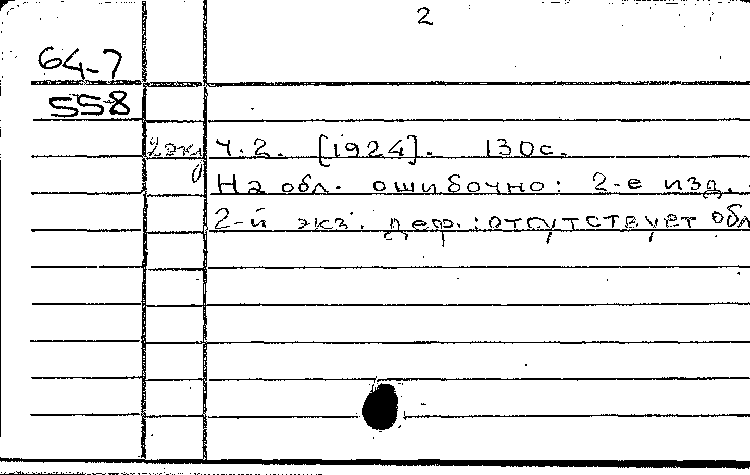 2
64-7
558
2 экз Ч.2. [1924]. 130с.
На обл. ошибочно: 2-е изд.
2-й экз. деф.: отсутствует обл